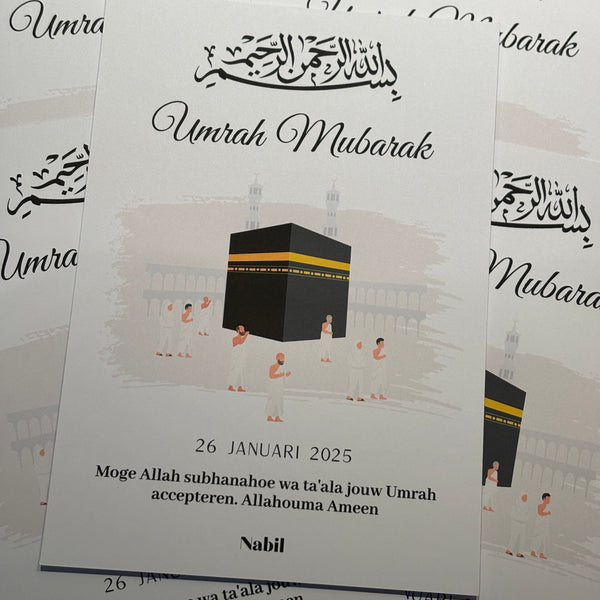 Umra
Mubarak
بسم الله الرحمن الرحيم
Umrah Mubarak
بسم الله الرحمن
Umra
Mubara
26 JANUARI 2025
Moge Allah subhanahoe wa ta'ala jouw Umrah
accepteren. Allahouma Ameen
Nabil
26 JAN
wa ta'ala jou